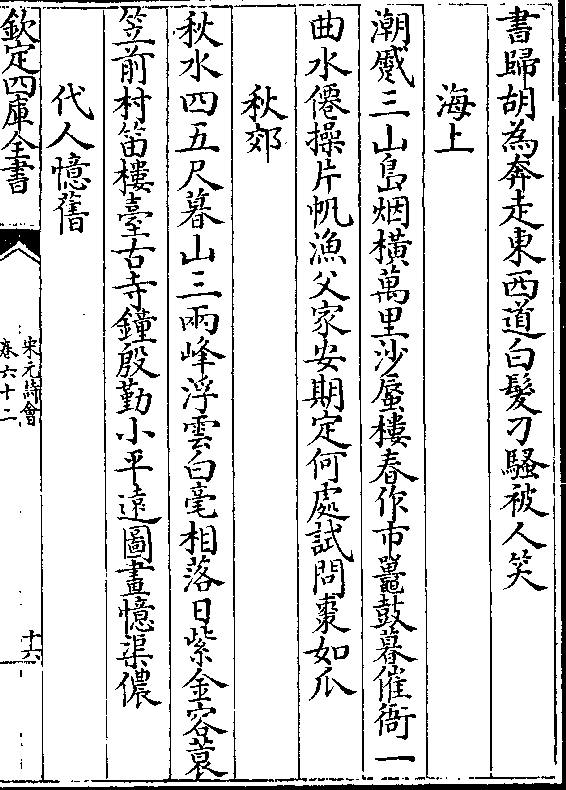 書歸胡為奔走東西道白髮刁騷被人笑
海上
潮蹙三山島烟橫萬里沙蜃樓春作市鼉鼓暮催衙一
曲水僊操片帆漁父家安期定何處試問棗如瓜
秋郊
秋水四五尺暮山三兩峰浮雲白毫相落日紫金容蓑
笠前村笛樓臺古寺鐘殷勤小平遠圖畫憶渠儂
代人憶舊
欽定四庫全書
宋元詩會
卷六十二
十六